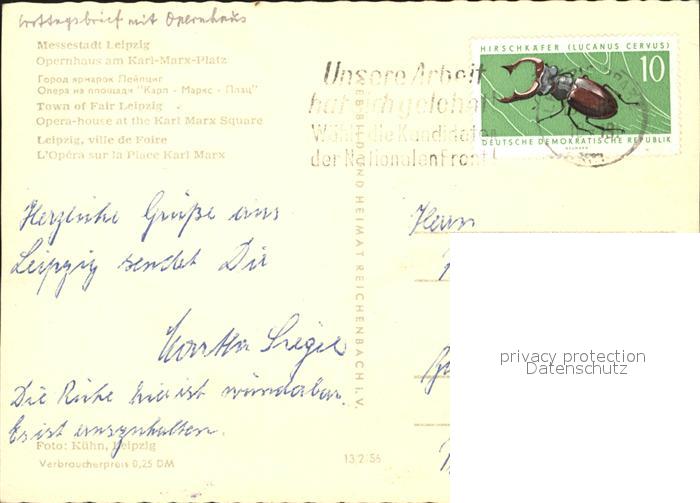 mit Opernhaus
Messestadt Leipzig
Opernhaus am Karl-Marx-Platz
Город ярмарок Лейпциг
Опера на площади "Карл - Маркс - Плац"
Town of Fair Leipzig
Opera-house at the Karl Marx Square
Leipzig, ville de Foire
L'Opéra sur la Place Karl Marx
Herzliche Grüße aus
Leipzig sendet Dir
Martha Siegel
Die Ruhe hier ist wunderbar.
Es ist auszuhalten.
Foto: Kühn, Leipzig
Verbraucherpreis 0,25 DM
13.2.56
VEB BILD UND HEIMAT REICHENBACH I.V.
Unsere Arbeit
hat sich gelohnt
Wählt die Kandidaten
der Nationalen Front
HIRSCHKÄFER (LUCANUS CERVUS)
10
DEUTSCHE DEMOKRATISCHE REPUBLIK
Herrn
privacy protection
Datenschutz